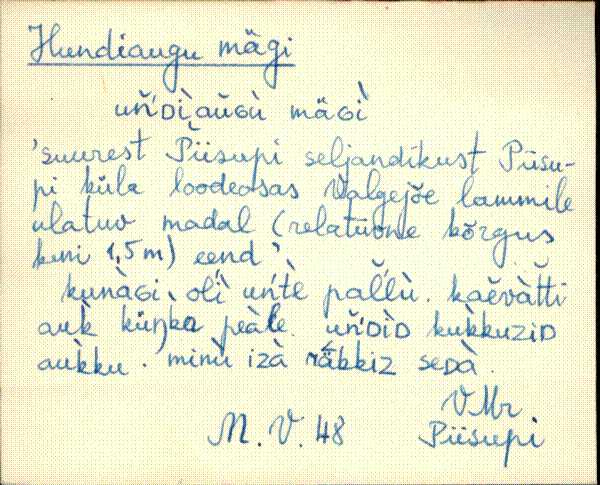 Hundiaugu mägi
uńᴅ̀iau̬ɢù mäɢì
'suurest Piisupi seljandikust Piisu-
pi küla loodeosas Valgejõe lammile
ulatuv madal (relatiivne kõrgus
kuni 1,5m) eend'
kunàɢi olì uńtè pal̆lù. kaĕvàt̆ti
auk küŋka peàle. uńᴅìᴅ kùkkuziᴅ
aùkku. minù izà räkkiz seᴅà.
M. V. 48
V Mr
Piisupi